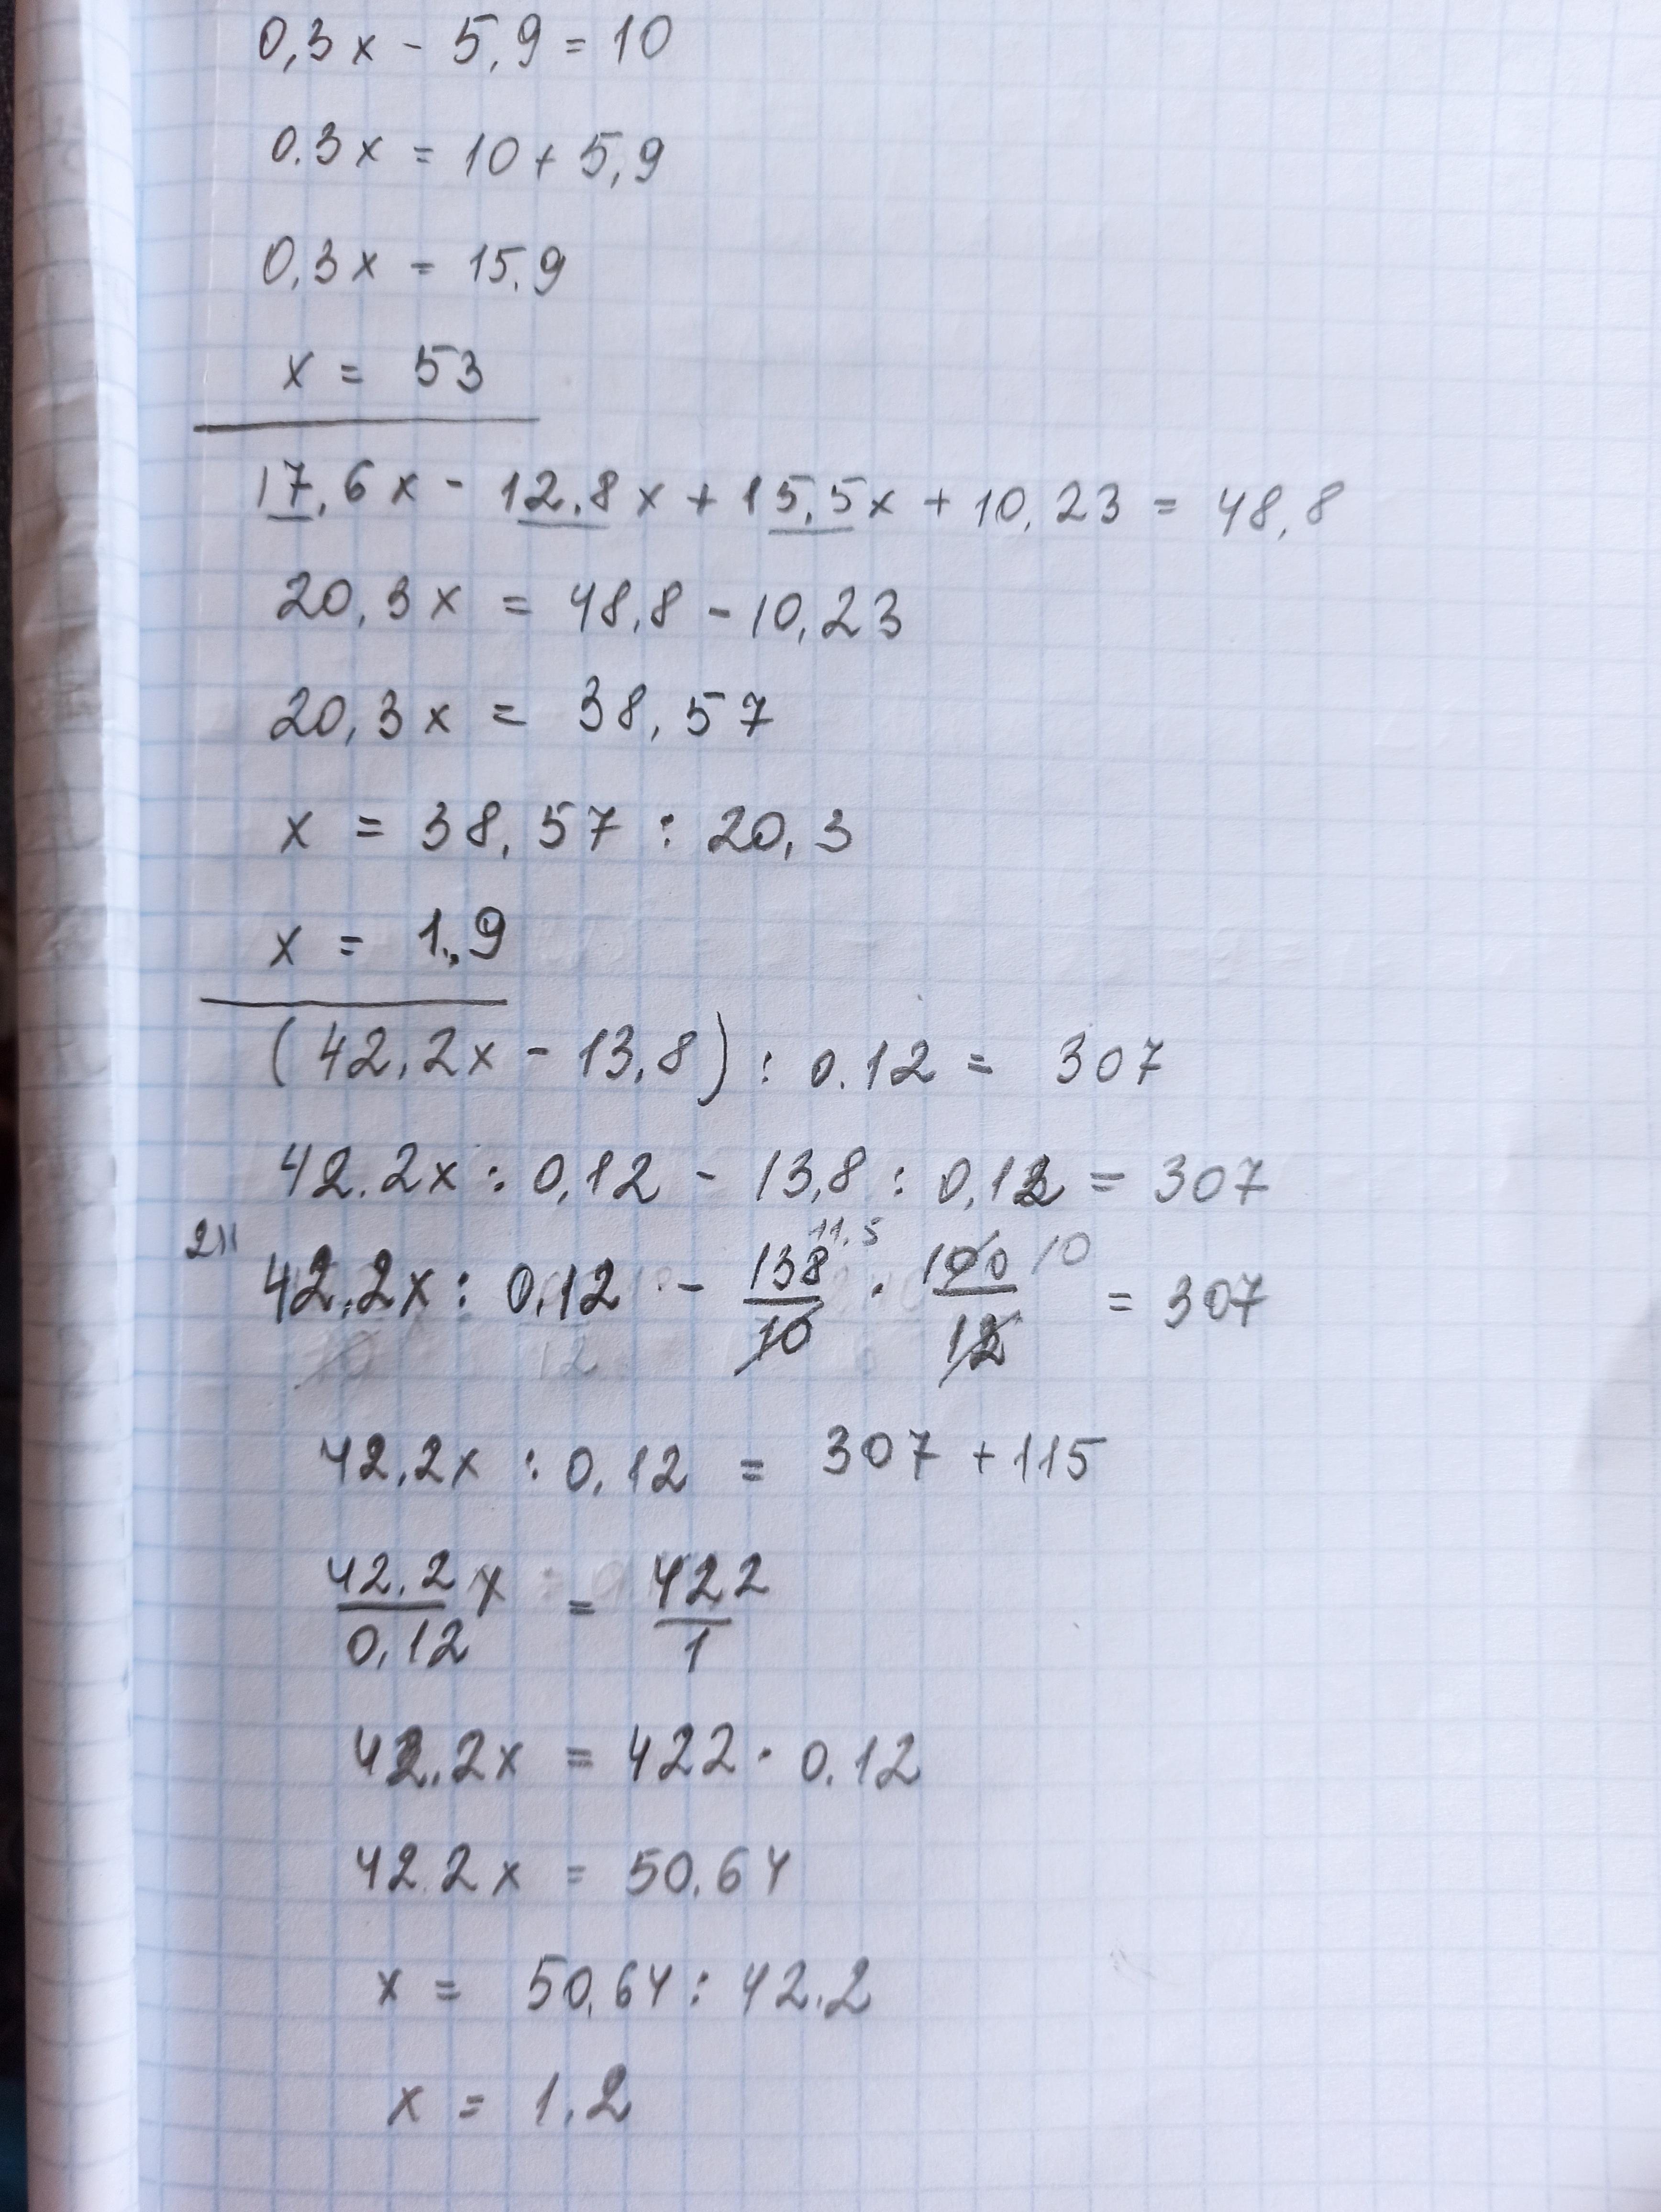 0,3x - 5,9 = 10
0.3x = 10 + 5,9
0,3x = 15.9
x = 53
17,6x - 12,8x + 15,5x + 10,23 = 48,8
20,3x = 48,8 - 10,23
20,3x = 38,57
x = 38,57 : 20,3
x = 1,9
(42,2x - 13,8) : 0.12 = 307
42.2x : 0,12 - 13,8 : 0,12 = 307
11,5
42,2x : 0,12 - 138/10 · 100/12 = 307
10
42,2x : 0,12 = 307 + 115
42,2/0,12 x = 422/1
42,2x = 422 · 0.12
42.2x = 50,64
x = 50,64 : 42,2
x = 1,2